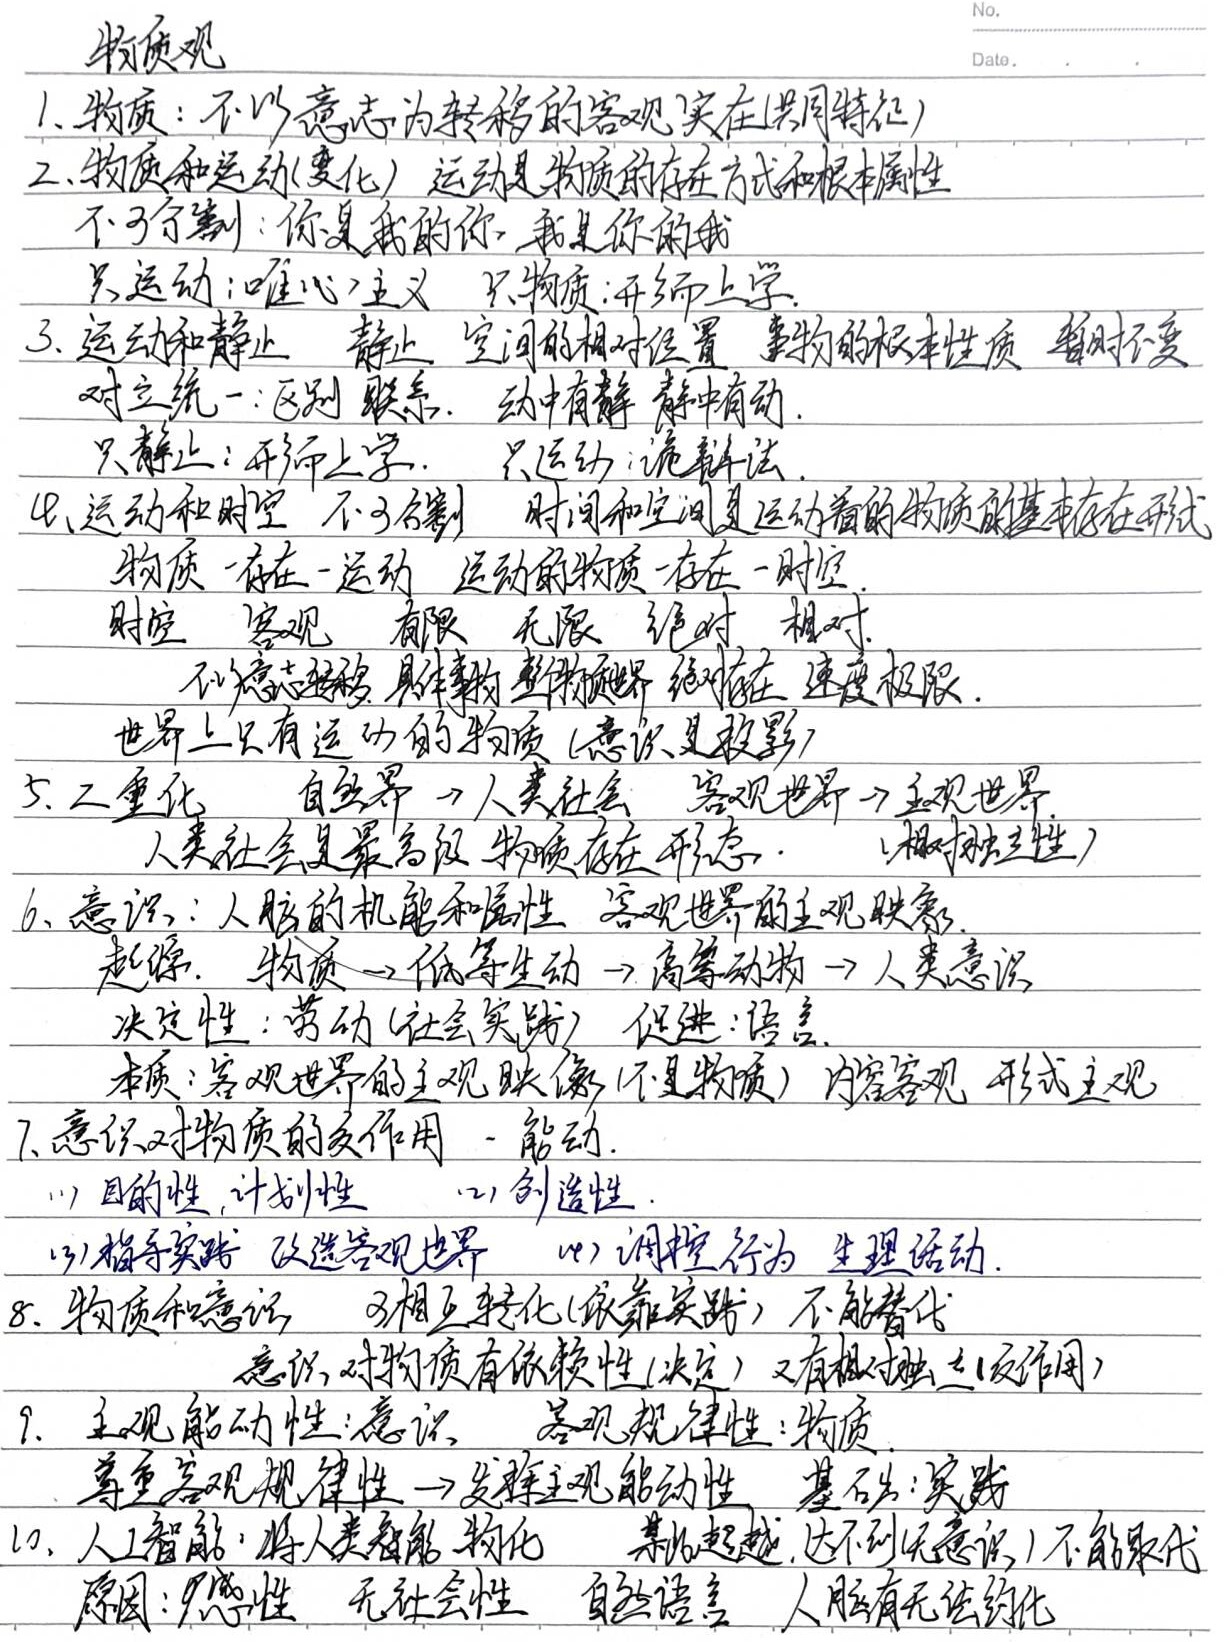 No.
Date.
物质观
1、物质：不以意志为转移的客观实在(共同特征)
2、物质和运动(变化) 运动是物质的存在方式和根本属性
不可分割：你是我的你，我是你的我
只运动：唯心主义 只物质：形而上学.
3、运动和静止 静止 空间的相对位置 事物的根本性质 暂时不变
对立统一：区别 联系. 动中有静 静中有动.
只静止：形而上学. 只运动：诡辩法.
4、运动和时空 不可分割 时间和空间是运动着的物质的基本存在形式
物质-存在-运动 运动的物质-存在-时空.
时空 客观 有限 无限 绝对 相对.
不以意志转移 具体事物 整个物质世界 绝对存在 速度极限.
世界上只有运动的物质(意识是投影)
5、二重化 自然界→人类社会 客观世界→主观世界.
人类社会是最高级物质存在形态. (相对独立性)
6、意识：人脑的机能和属性 客观世界的主观映象.
起源. 物质→低等生动→高等动物→人类意识
决定性：劳动(社会实践) 促进：语言.
本质：客观世界的主观映像(不是物质) 内容客观 形式主观
7、意识对物质的反作用 - 能动.
(1) 目的性,计划性 (2) 创造性.
(3) 指导实践 改造客观世界 (4) 调控行为 生理活动.
8、物质和意识 可相互转化(依靠实践) 不能替代
意识对物质有依赖性(决定) 又有相对独立(反作用)
9. 主观能动性：意识 客观规律性：物质.
尊重客观规律性→发挥主观能动性 基石：实践
10、人工智能：将人类智能物化 某些超越,达不到(无意识) 不能取代
原因： 无社会性 自然语言 人脑有无法约化